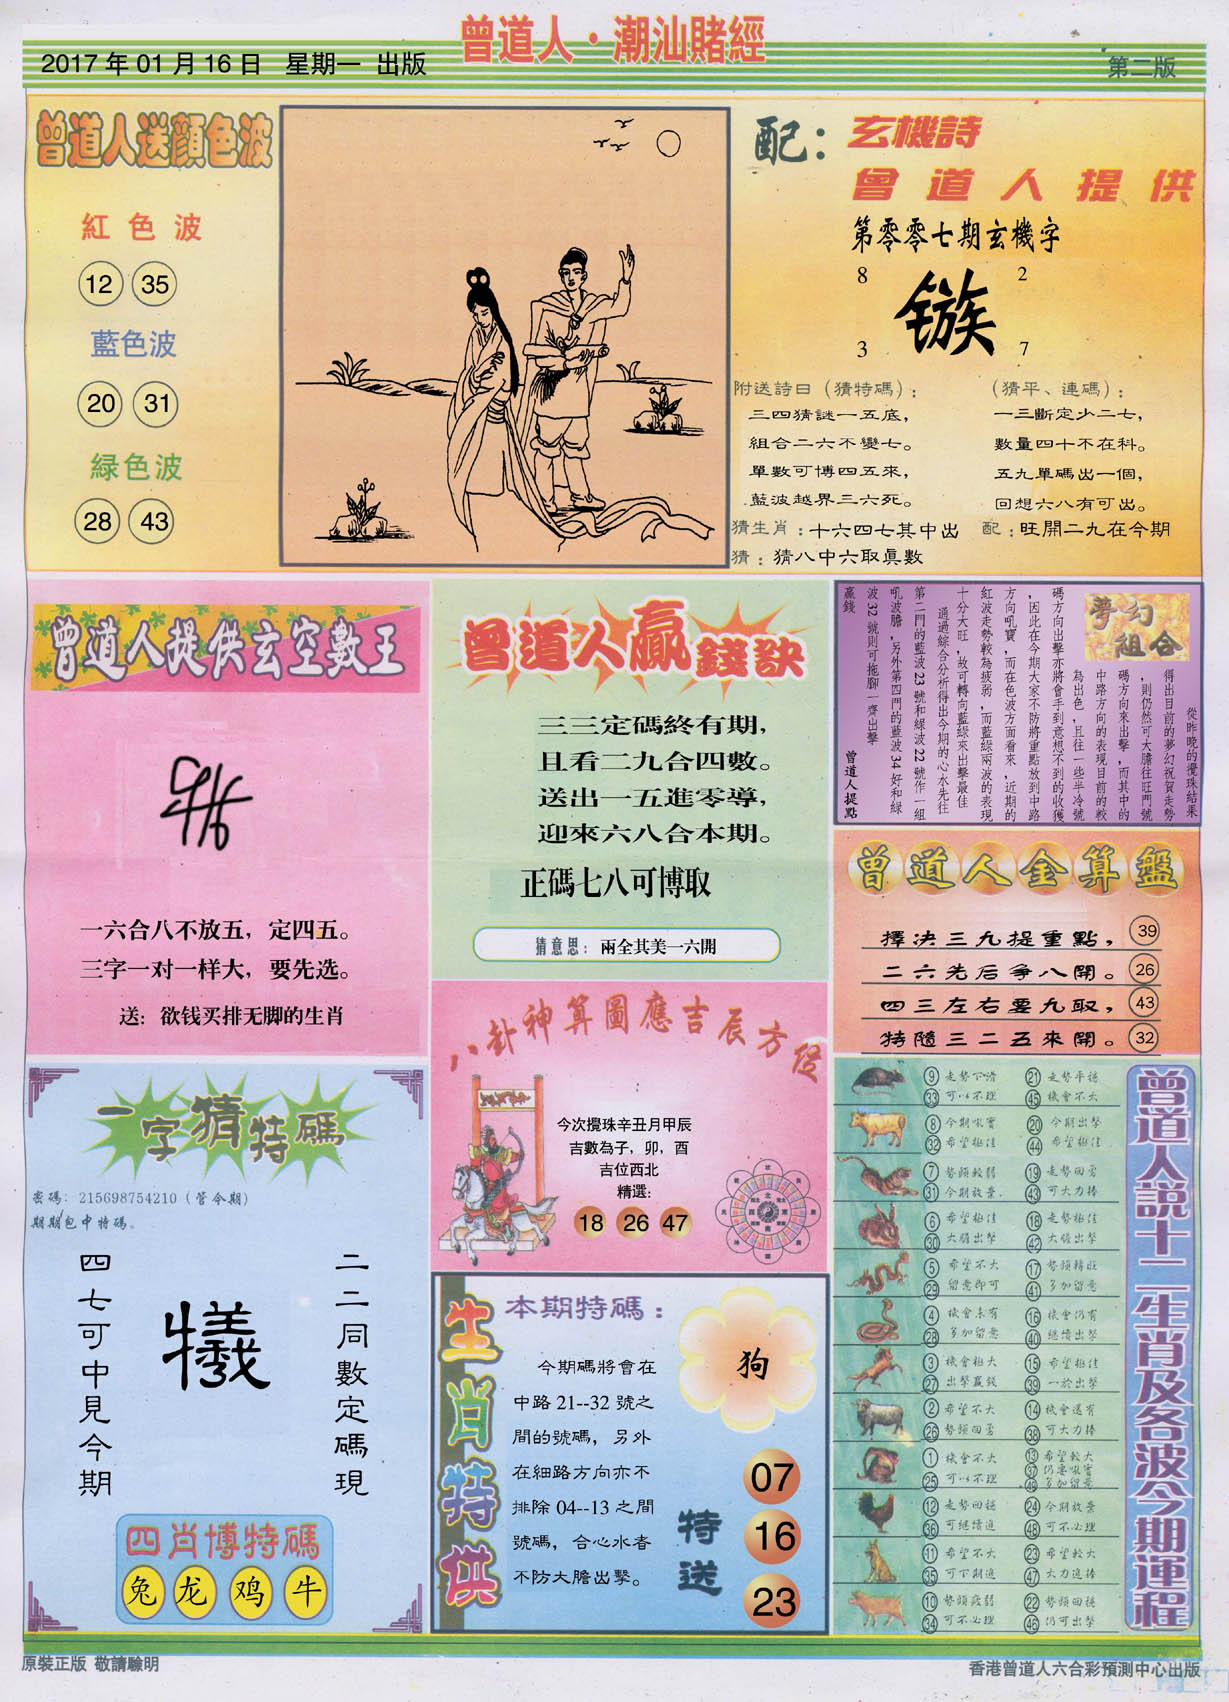 曾道人·潮汕賭經
2017年01月16日 星期一 出版
第二版
曾道人送顏色波
紅色波
12 35
藍色波
20 31
緑色波
28 43
配：玄機詩
曾道人提供
第零零七期玄機字
8 2
镞
3 7
附送詩曰（猜特碼）：
三四猜謎一五底，
組合二六不變七。
單數可博四五來，
藍波越界三六死。
（猜平、連碼）：
一三斷定少二七，
數量四十不在科。
五九單碼出一個，
回想六八有可出。
猜生肖：十六四七其中出 配：旺開二九在今期
猜：猜八中六取眞數
曾道人提供玄空數王
一六合八不放五，定四五。
三字一对一样大，要先选。
送：欲钱买排无脚的生肖
曾道人贏錢訣
三三定碼終有期，
且看二九合四數。
送出一五進零導，
迎來六八合本期。
正碼七八可博取
猜意思：兩全其美一六開
夢幻組合
從昨晚的攪珠結果
得出目前的夢幻祝賀走勢
，則仍然可大膽往旺門號
碼方向來出擊，而其中的
中路方向的表現目前的較
為出色，且往一些半冷號
碼方向出擊亦將會手到意想不到的收獲
，因此在今期大家不防將重點放到中路
方向吼寶，而在色波方面看來，近期的
紅波走勢較為疲弱，而藍綠兩波的表現
十分大旺，故可轉向藍綠來出擊最佳
通過綜合分析得出今期的心水先往
第二門的藍波23號和綠波22號作一組
吼波膽，另外第四門的藍波34好和綠
波32號則可拖腳一齊出擊
贏錢
曾道人提點
曾道人金算盤
擇決三九提重點， 39
二六先后爭八開。 26
四三左右要九取， 43
特隨三二五來開。 32
八卦神算圖應吉辰方位
今次攪珠辛丑月甲辰
吉數為子，卯，酉
吉位西北
精選:
18 26 47
一字猜特碼
密碼：215698754210（管今期）
期期包中特碼。
四七可中見今期
犠
二二同數定碼現
四肖博特碼
兔 龙 鸡 牛
生肖特供
本期特碼：
狗
今期碼將會在
中路21--32號之
間的號碼，另外
在細路方向亦不
排除04--13之間
號碼，合心水者
不防大膽出擊。
特送
07
16
23
曾道人說十二生肖及各波今期運程
9 走勢下滑 21 走勢平穩
33 可以不理 45 機會不大
8 今期吼寶 20 今期出擊
32 希望極佳 44 希望極佳
7 勢頭較弱 19 走勢回勇
31 今期放棄 43 可大力捧
6 希望極佳 18 走勢極佳
30 大膽出擊 42 大膽出擊
5 希望不大 17 勢頭轉旺
29 留意即可 41 多加留意
4 機會未有 16 機會仍有
28 多加留意 40 繼續出擊
3 機會極大 15 希望極佳
27 出擊贏錢 39 一於出擊
2 希望不大 14 機會還有
26 勢頭回勇 38 可大力捧
1 機會不大 13 希望較大
25 可以不理 37 仍要吼實
49 多加留意
12 走勢回穩 24 今期放棄
36 可繼續追 48 可不必理
11 希望不大 23 希望較大
35 可下期追 47 大力追捧
10 勢頭疲弱 22 勢頭回穩
34 可不必理 46 仍可出擊
原裝正版 敬請驗明
香港曾道人六合彩預測中心出版